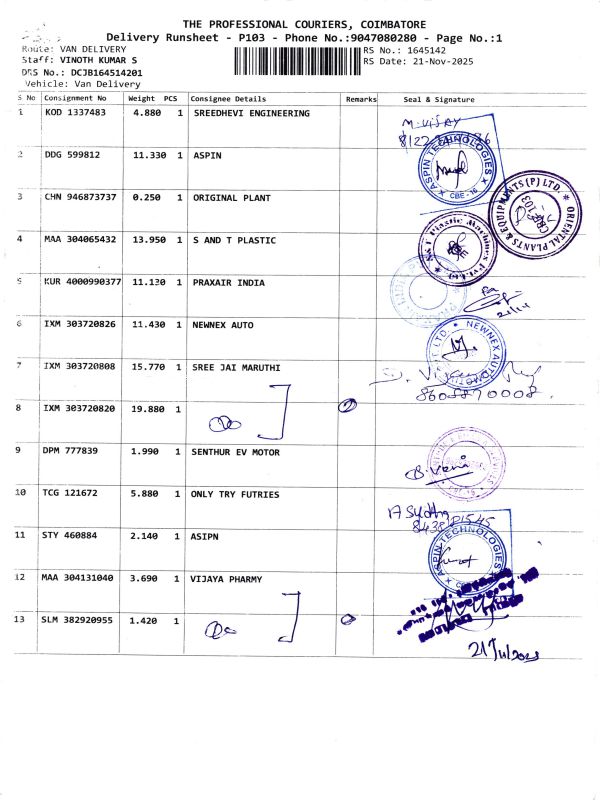 THE PROFESSIONAL COURIERS, COIMBATORE
Delivery Runsheet - P103 - Phone No.:9047080280 - Page No.:1
Route: VAN DELIVERY
RS No.: 1645142
Staff: VINOTH KUMAR S
RS Date: 21-Nov-2025
DRS No.: DCJB164514201
Vehicle: Van Delivery
S No Consignment No Weight PCS Consignee Details Remarks Seal & Signature
1 KOD 1337483 4.880 1 SREEDHEVI ENGINEERING
M. VIJAY
2 DDG 599812 11.330 1 ASPIN
ASPIN TECHNOLOGIES
CBE-16
3 CHN 946873737 0.250 1 ORIGINAL PLANT
ORIENTAL PLANTS & EQUIPMENTS (P) LTD.
4 MAA 304065432 13.950 1 S AND T PLASTIC
S&T Plastic Machines Pvt Ltd
5 KUR 4000990377 11.130 1 PRAXAIR INDIA
6 IXM 303720826 11.430 1 NEWNEX AUTO
7 IXM 303720808 15.770 1 SREE JAI MARUTHI
8608870008.
8 IXM 303720820 19.880 1
9 DPM 777839 1.990 1 SENTHUR EV MOTOR
B. Vani
10 TCG 121672 5.880 1 ONLY TRY FUTRIES
11 STY 460884 2.140 1 ASIPN
ASPIN TECHNOLOGIES
12 MAA 304131040 3.690 1 VIJAYA PHARMY
13 SLM 382920955 1.420 1